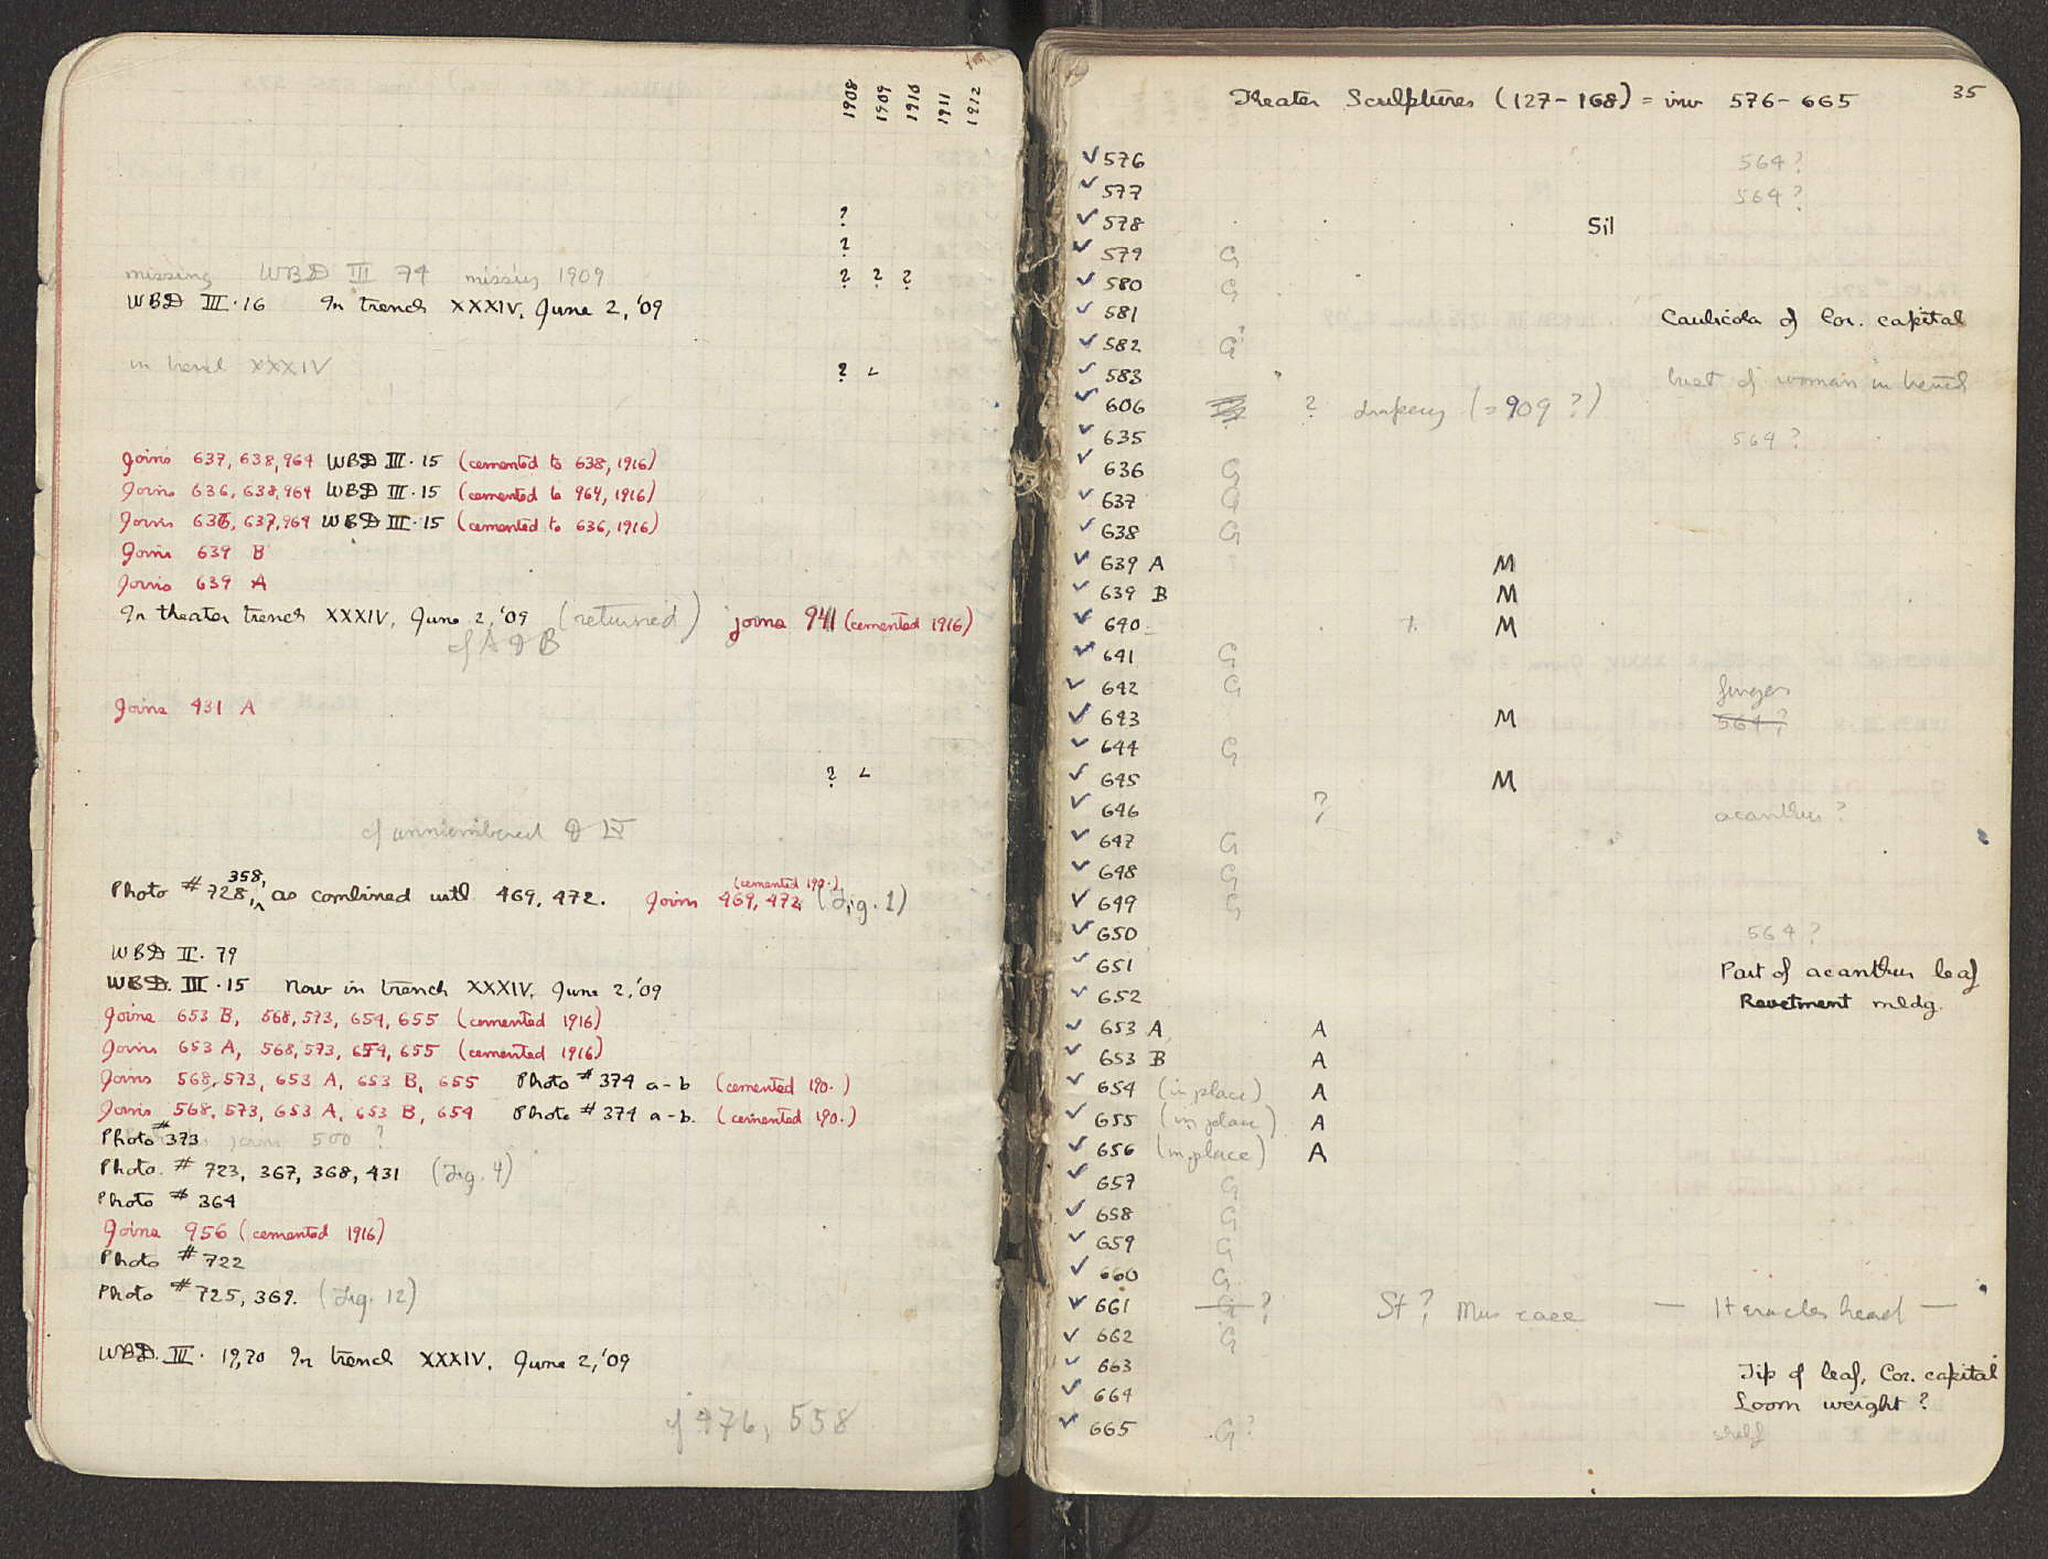 1908 1909 1910 1911 1912
?
?
missing WBD III 74 missing 1909 ? ? ?
WBD III·16 In trench XXXIV, June 2, '09
in trench XXXIV ? L
Joins 637, 638, 964 WBD III·15 (cemented to 638, 1916)
Joins 636, 638, 964 WBD III·15 (cemented to 964, 1916)
Joins 636, 637, 964 WBD III·15 (cemented to 636, 1916)
Joins 639 B
Joins 639 A
In theater trench XXXIV, June 2, '09 (returned) joins 941 (cemented 1916)
cf A D B
Joins 431 A
? L
cf unnumbered D IV
Photo # 728, 358, as combined with 469, 472. Joins 469, 472 (cemented 190.) (Fig. 1)
WBD II. 79
WBD. III·15 Now in trench XXXIV, June 2, '09
Joins 653 B, 568, 573, 654, 655 (cemented 1916)
Joins 653 A, 568, 573, 654, 655 (cemented 1916)
Joins 568, 573, 653 A, 653 B, 655 Photo # 374 a-b (cemented 190.)
Joins 568, 573, 653 A, 653 B, 654 Photo # 374 a-b. (cemented 190.)
Photo # 373 joins 500 ?
Photo. # 723, 367, 368, 431 (Fig. 4)
Photo # 364
Joins 956 (cemented 1916)
Photo # 722
Photo # 725, 369. (Fig. 12)
WBD. III. 19, 20 In trench XXXIV, June 2, '09
cf 476, 558
35
Theater Sculptures (127-168) = inv 576-665
✓ 576 564?
✓ 577 564?
✓ 578 Sil
✓ 579 G
✓ 580 G
✓ 581 Caulicola of Cor. capital
✓ 582 G?
✓ 583 bust of woman in trench
✓ 606 ? drapery (=909?)
✓ 635 564?
✓ 636 G
✓ 637 G
✓ 638 G
✓ 639 A M
✓ 639 B M
✓ 640 M
✓ 641 G
✓ 642 G fingers
✓ 643 M 564?
✓ 644 G
✓ 645 M
✓ 646 ? acanthus?
✓ 647 G
✓ 648 G
✓ 649 G
✓ 650 564?
✓ 651 Part of acanthus leaf
✓ 652 Revetment mldg.
✓ 653 A A
✓ 653 B A
✓ 654 (in place) A
✓ 655 (in place) A
✓ 656 (in place) A
✓ 657 G
✓ 658 G
✓ 659 G
✓ 660 G
✓ 661 G? St? Mus case — Heracles head —
✓ 662 G
✓ 663 Tip of leaf, Cor. capital
✓ 664 Loom weight?
✓ 665 G? shelf